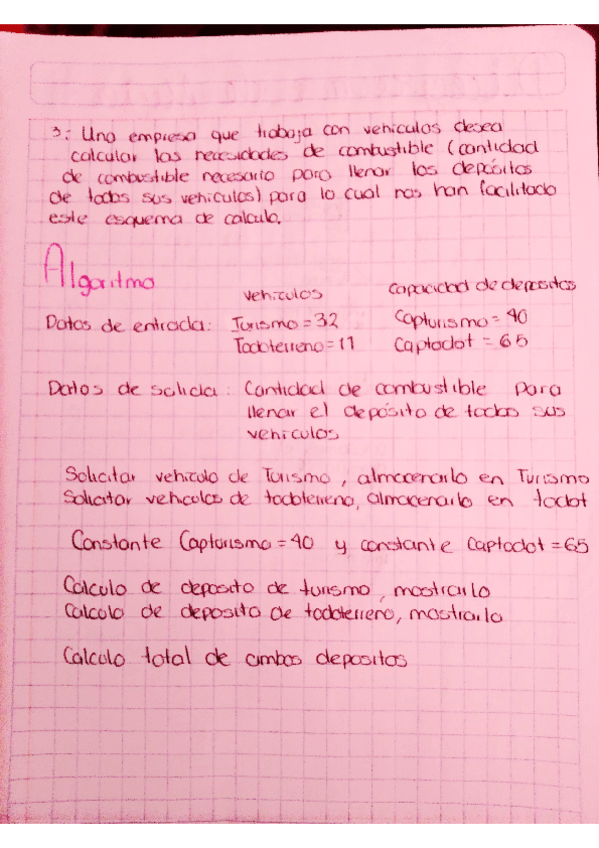 3: Una empresa que trabaja con vehiculos desea
calcular las necesidades de combustible (cantidad
de combustible necesario para llenar los depósitos
de todos sus vehiculos) para lo cual nos han facilitado
este esquema de calculo.
Algoritmo
vehiculos capacidad de depositos
Datos de entrada: Turismo = 32 Capturismo = 40
Todoterreno = 11 Captodot = 65
Datos de salida: Cantidad de combustible para
llenar el depósito de todos sus
vehiculos
Solicitar vehiculo de Turismo, almacenarlo en Turismo
Solicitar vehcolos de todoterreno, almacenarlo en todot
Constante Capturismo = 40 y constante Captodot = 65
Calculo de deposito de turismo, mostrarlo
Calculo de deposito de todoterreno, mostrarlo
Calculo total de ambos depositos